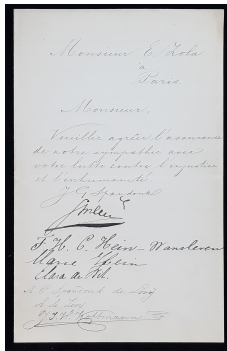 Monsieur E. Zola
à
Paris
Monsieur,
Veuillez agréer l'assurance
de notre sympathie avec
votre lutte contre l'injustice
et l'inhumanité
J G
F. H. C. Hein-Wansleven
Marie Hein
Clara de
de
A.